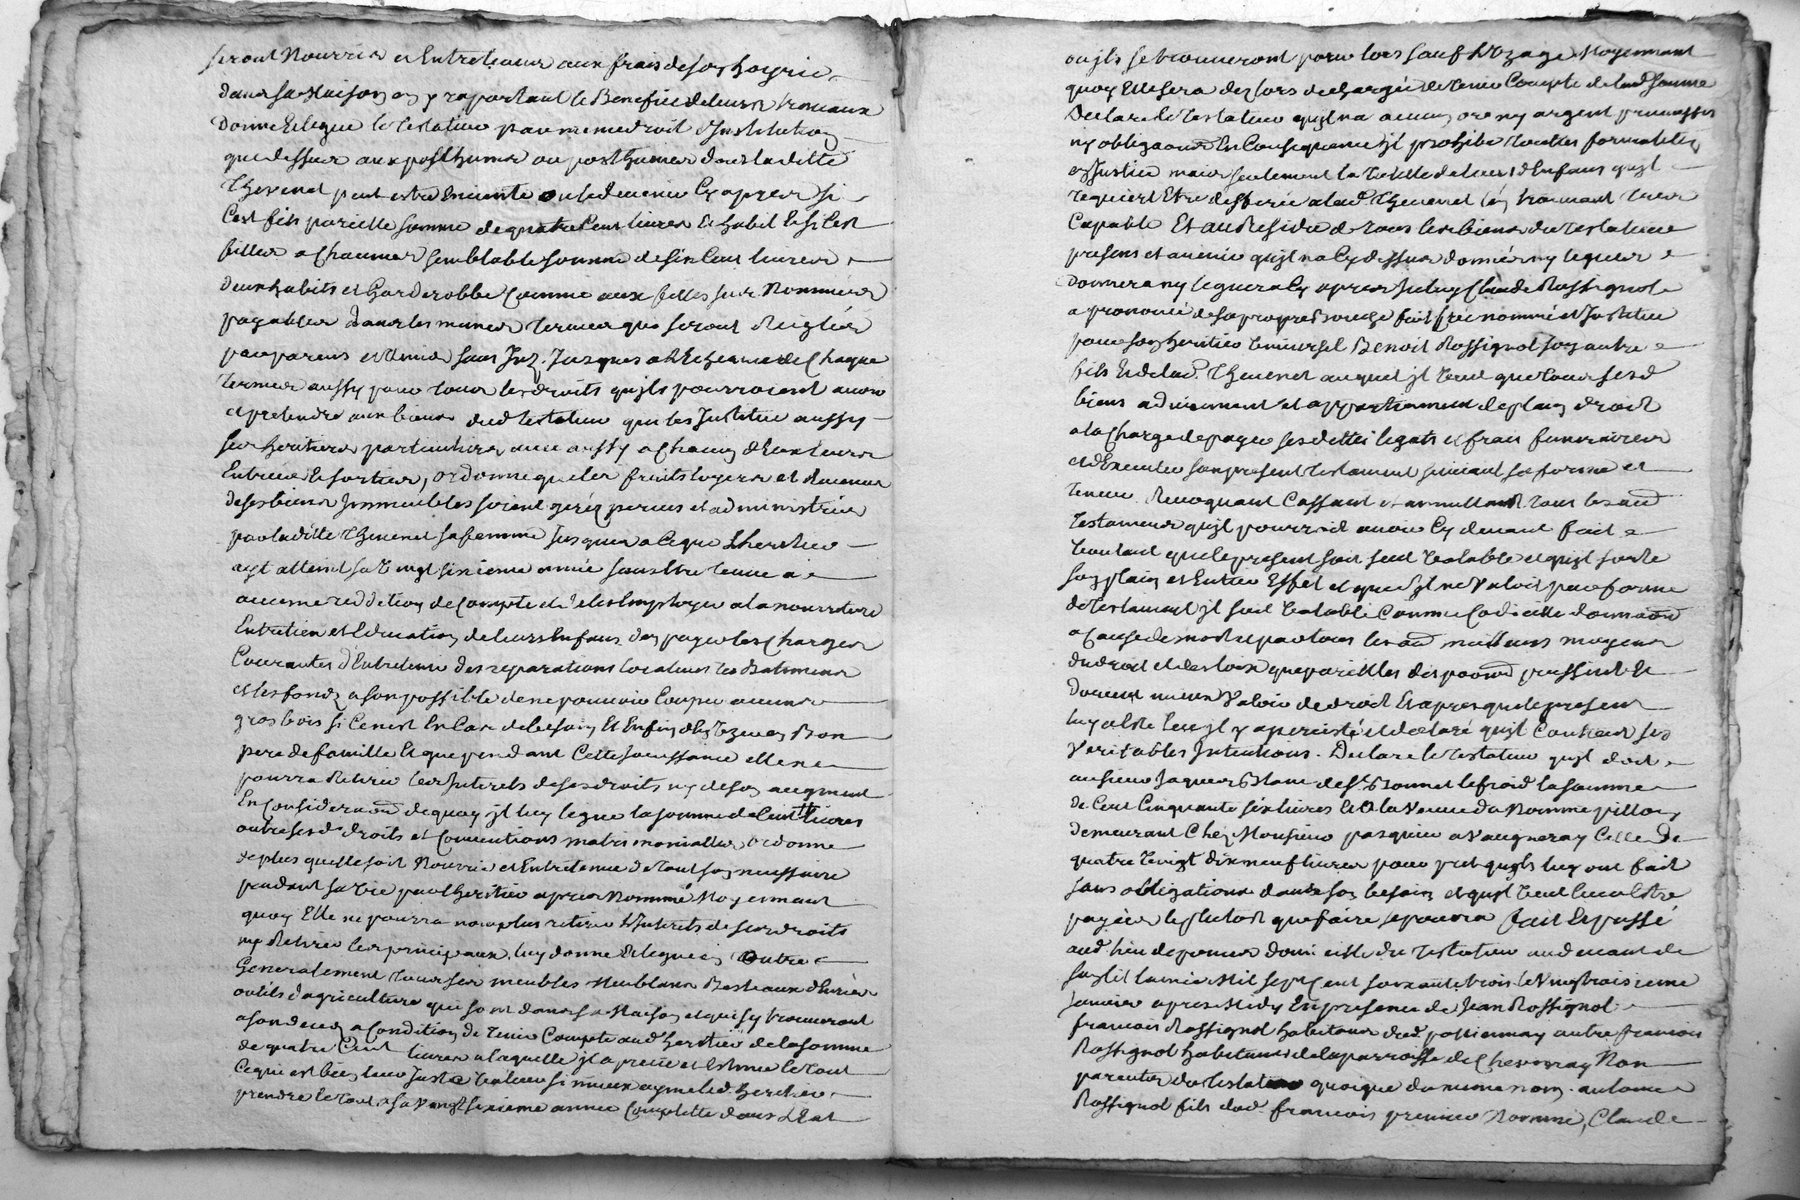 seront Nourris et Entretenus aux frais de son hoyrie
dans sa Maison en y raportant le Benefice de leurs travaux
Donne Et legue le Testateur par meme droit d'Institution
que dessus aux posthumes ou posthumes dont laditte
Thevenet peut estre Enceinte ou le devenir Cy apres si
C'est fils pareille somme de quatre Cent livres Et habit Et si C'est
filles a Chaune semblable somme de six Cent livres
deux habits et Garderobbe Comme aux filles sus Nommées
payables dans les memes termes que seront Reiglés
par parens et Amis sans Int. Jusques a l'Echeance de Chaque
Termes aussy pour tous les droits qu'ils pourroient avoir
et pretendre aux biens dud testateur qui les Institue aussy
ses heritiers particuliers, avec aussy a Chacun d'Eux leurs
Entrée Et sorties, ordonne que les fruits loyers et Revenus
de ses biens Immeubles soient gérés perçus et administrés
par laditte Thevenet sa femme Jusques a Ce que l'heritier
ayt atteint sa vingt sixieme année sans Etre tenue a
aucune reddition de Compte et les Employer a la nourriture
Entretien et Education de leurs Enfans, d'en payer les Charges
Courantes d'Entretenir des reparations locatives les Batimens
et les fonds a son possible de ne pouvoir Couper aucuns
gros bois si Ce n'est En Cas de besoin Et Enfin d'En Uzer en Bon
pere de famille Et que pendant Cette Jouissance elle ne
pourra Retirer les Interets de ses droits ny de son augment
En Consideraon de quoy il luy legue la somme de Cent livres
outre ses ds droits et Conventions matrimonialles, ordonne
de plus qu'elle soit Nourrie et Entretenue de tout son necessaire
pendant sa vie par l'heritier apres Nommé Moyennant
quoy Elle ne pourra non plus retirer l'Interets de ses droits
ny Retirer les principaux, luy donne Et legue En Outre
Generalement tous ses meubles Meublans Bestiaux d'hurées
outils d'agriculture qui sont dans sa Maison et qui s'y trouveront
a son decez a Condition de tenir Compte aud heritier de la somme
de quatre Cent livres a laquelle il a prisé et Estimé le tout
Ce qui est bien leur Juste valeur si mieux ayme led. heritier
prendre le tout a sa vingt sixieme année Complette dans l'Etat
ou ils se trouveront pour lors sauf l'Uzage Moyennant
quoy Elle sera des lors dechargée de tenir Compte de lad somme
Declare le Testateur qu'il n'a aucun or ny argent promesses
ny obligaons En Consequence il prohibe toutes formalités
en Justice mais seulement la tutelle de leurs d Enfans qu'il
requiert Etre defferée a lad Thevenet l'en trouvant tres
Capable Et au Residu de tous les biens du Testateur
presens et avenir qu'il n'a Cy dessus donnés ny legués
donnera ny leguera Cy apres Iceluy Claude Rossignol
a prononcé de sa propre bouche fait Créé nommé et Institué
pour son heritier Universel Benoit Rossignol son autre
fils Et de lad. Thevenet auquel il veut que tous sesd
biens adviennent et appartiennent de plein droit
a la Charge de payer ses dettes legats et frais funeraires
et d'Executer son present testament suivant sa forme et
teneur Revoquant Cassant et annullant tous les aud
Testamens qu'il pourroit avoir Cy devant fait
voulant que le present soit seul valable et qu'il sorte
son plain et Entier Effet et que s'il ne valoit par forme
de Testament il soit valable Comme Codicille donnaon
a Cause de mort et par tous les aud meilleurs moyens
de droit et des loix que pareilles dispoons puissent et
doivent mieux valoir de droit Et apres que le present
luy a Eté leu il y a persisté et declaré qu'il Contient ses
veritables Intentions. Declare le Testateur qu'il doit
au sieur Jaques Blanc de St Bonnet le froid la somme
de Cent Cinquante six livres Et a la veuve du Nommé pillon,
demeurant Chez Monsieur pasquier a Vaugneray Celle De
quatre vingt dix neuf livres pour pret qu'ils luy ont fait
sans obligations dans son besoin et qu'il veut leur Etre
payées le plutot que faire se pourra fait Et passé
aud lieu de domicille du Testateur au devant de
son lit l'année Mil sept Cent soixante trois le Vingt troisieme
Janvier apres Midy En presence de Jean Rossignol
francois Rossignol habitans dud pollionnay autre francois
Rossignol habitans de la parroisse de Chevinay Non
parentes du Testateur quoique du meme nom. antoine
Rossignol fils dud francois premier Nommé, Claude